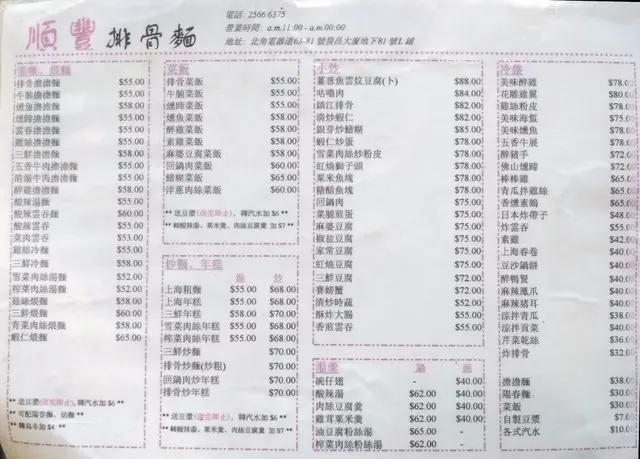 順豐 排骨麵
電話: 2566 6375
營業時間: a.m.11:00 - a.m.00:00
地址: 北角電器道63-81號發昌大廈地下81號L鋪
湯麵、煨麵
排骨擔擔麵 $55.00
牛腩擔擔麵 $55.00
燻魚擔擔麵 $58.00
燻蹄擔擔麵 $55.00
雲吞擔擔麵 $55.00
雞絲擔擔麵 $55.00
三鮮擔擔麵 $58.00
五香牛肉擔擔麵 $55.00
清湯牛肉擔擔麵 $55.00
醉雞擔擔麵 $58.00
酸辣湯麵 $55.00
酸辣雲吞麵 $60.00
酸辣雲吞 $55.00
菜肉雲吞 $53.00
雞絲冷麵 $55.00
三鮮冷麵 $58.00
雪菜肉絲湯麵 $52.00
榨菜肉絲湯麵 $52.00
雞絲煨麵 $58.00
三鮮煨麵 $60.00
青菜肉絲煨麵 $58.00
蝦仁煨麵 $65.00
** 送豆漿(送完即止), 轉汽水加 $6 **
** 可配陽春麵、粘麵 **
** 轉烏冬加 $4 **
菜飯
排骨菜飯 $55.00
牛腩菜飯 $55.00
燻蹄菜飯 $55.00
燻魚菜飯 $58.00
醉雞菜飯 $58.00
素雞菜飯 $55.00
麻婆豆腐菜飯 $55.00
回鍋肉菜飯 $60.00
鱔糊菜飯 $65.00
洋蔥肉絲菜飯 $60.00
** 送豆漿(送完即止), 轉汽水加 $6 **
** 轉酸辣湯、粟米羹、肉絲豆腐羹 加 $7 **
炒麵、年糕
湯 炒
上海粗麵 $55.00 $68.00
上海年糕 $55.00 $68.00
三鮮年糕 $58.00 $70.00
雪菜肉絲年糕 $55.00 $68.00
榨菜肉絲年糕 $55.00 $68.00
三鮮炒麵 $70.00
排骨炒麵(炒粗) $70.00
回鍋肉炒年糕 $70.00
排骨炒年糕 $70.00
** 送豆漿(送完即止), 轉汽水加 $6 **
** 轉酸辣湯、粟米羹、肉絲豆腐羹 加 $7 **
小炒
薑蔥魚雲炆豆腐(卜) $88.00
咕嚕肉 $84.00
鎮江排骨 $82.00
清炒蝦仁 $82.00
銀芽炒鱔糊 $85.00
蝦仁炒蛋 $78.00
雪菜肉絲炒粉皮 $78.00
紅燒獅子頭 $78.00
粟米魚塊 $78.00
糖醋魚塊 $78.00
回鍋肉 $75.00
菜脯煎蛋 $75.00
麻婆豆腐 $75.00
椒鹽豆腐 $75.00
家常豆腐 $75.00
紅燒豆腐 $75.00
三鮮豆腐 $72.00
賽螃蟹 $72.00
清炒時蔬 $52.00
酥炸大腸 $55.00
香煎雲吞 $55.00
湯羹
鍋 碗
碗仔翅 - $40.00
酸辣湯 $62.00 $40.00
肉絲豆腐羹 $62.00 $40.00
雞茸粟米羹 $62.00 $40.00
油豆腐粉絲湯 $65.00 -
榨菜肉絲粉絲湯 $62.00 -
冷盤
美味醉雞 $78.00
花雕雞翼 $80.00
雞絲粉皮 $78.00
美味海蜇 $75.00
美味燻魚 $78.00
五香牛展 $78.00
醉豬手 $72.00
佛山燻蹄 $72.00
棒棒雞 $65.00
青瓜拌雞絲 $65.00
香燻素鵝 $65.00
日本炸帶子 $48.00
炸雲吞 $55.00
素雞 $42.00
上海春卷 $40.00
豆沙鍋餅 $40.00
醉鴨腎 $40.00
麻辣鳳爪 $40.00
麻辣豬耳 $40.00
涼拌青瓜 $38.00
涼拌貢菜 $40.00
芹菜乾絲 $36.00
炸排骨 $32.00
擔擔麵 $38.00
陽春麵 $30.00
菜飯 $30.00
自製豆漿 $7.00
各式汽水 $10.00